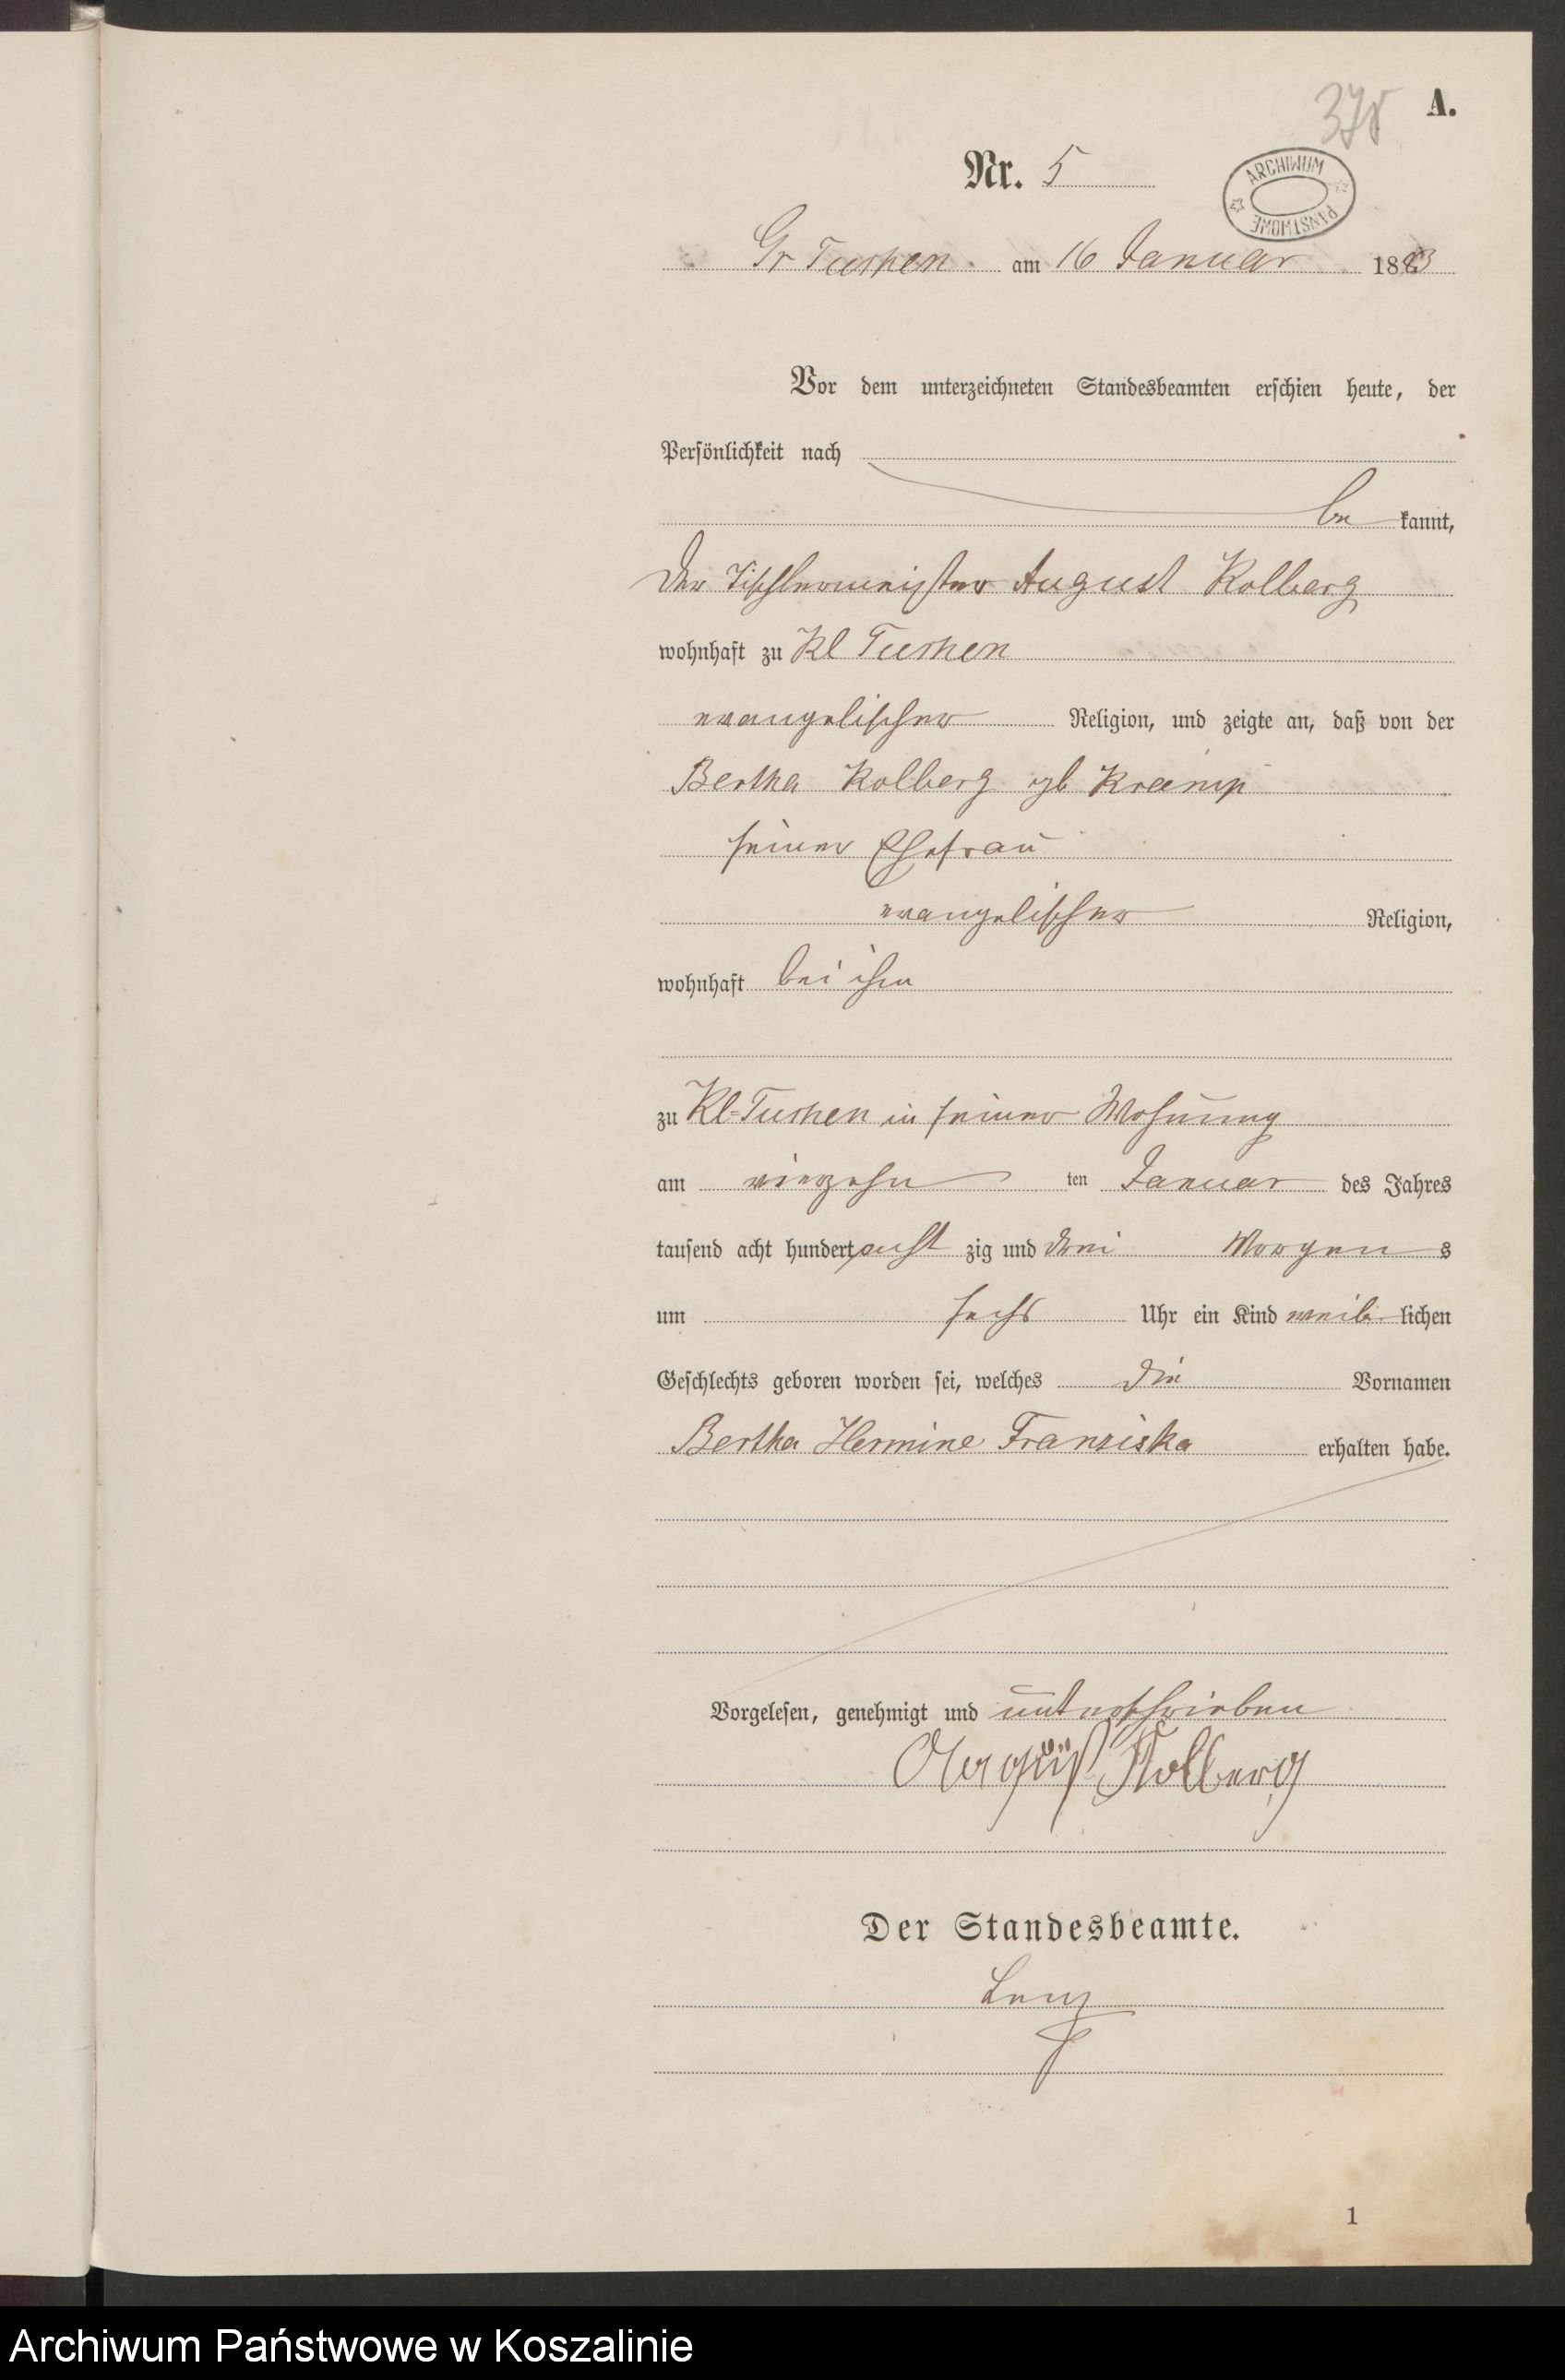 A.
378
Nr. 5
ARCHIWUM PAŃSTWOWE
Gr Tuchen am 16 Januar 1883
Vor dem unterzeichneten Standesbeamten erschien heute, der
Persönlichkeit nach
be kannt,
der Tischlermeister August Kolberg
wohnhaft zu Kl Tuchen
evangelischer Religion, und zeigte an, daß von der
Bertha Kolberg gb Kramp
seiner Ehefrau
evangelischer Religion,
wohnhaft bei ihm
zu Kl-Tuchen in seiner Wohnung
am vierzehn ten Januar des Jahres
tausend acht hundert acht zig und drei Morgen s
um sechs Uhr ein Kind weib lichen
Geschlechts geboren worden sei, welches die Vornamen
Bertha Hermine Franziska erhalten habe.
Vorgelesen, genehmigt und unterschrieben
August Kolberg
Der Standesbeamte.
Lenz
1
Archiwum Państwowe w Koszalinie